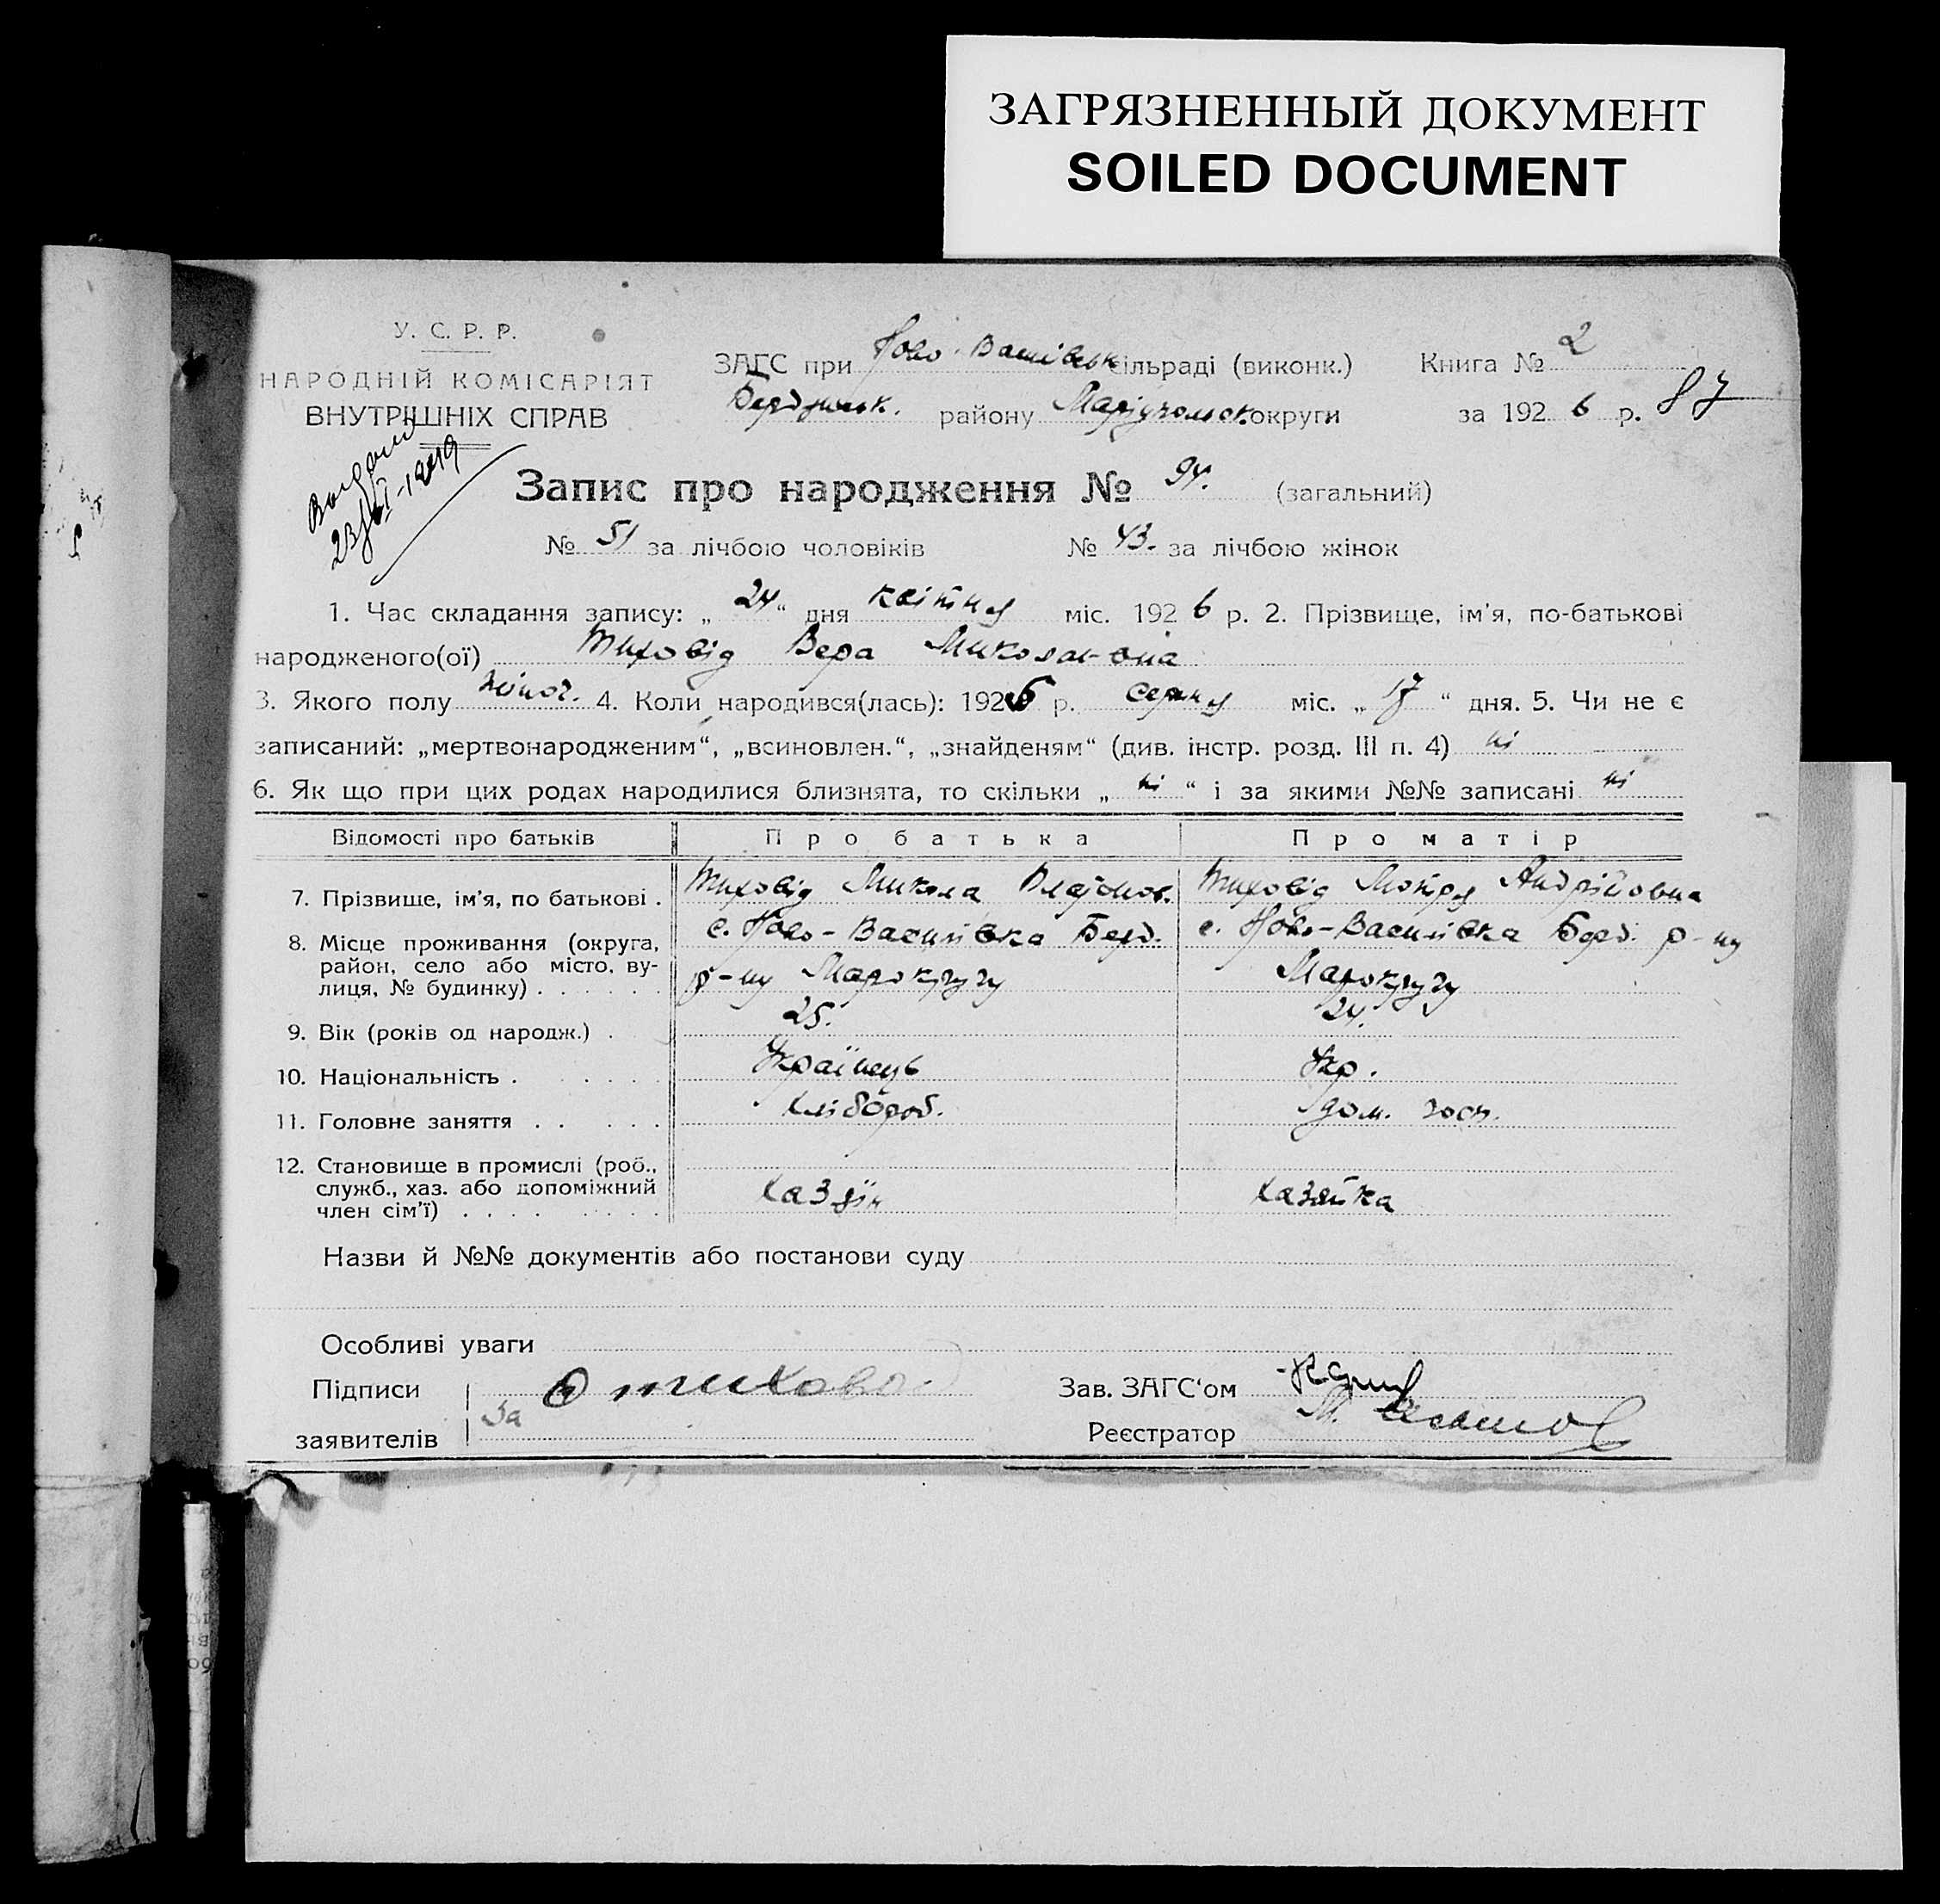 ЗАГРЯЗНЕННЫЙ ДОКУМЕНТ
SOILED DOCUMENT
У. С. Р. Р.
НАРОДНІЙ КОМІСАРІЯТ
ВНУТРІШНІХ СПРАВ
ЗАГС при Ново-Васиівськ сільраді (виконк.) Книга № 2
Бердянськ. району Маріупольськ округи за 1926 р. 87
Запис про народження № 94. (загальний)
№ 51 за лічбою чоловіків № 43. за лічбою жінок
1. Час складання запису: „24“ дня квітня міс. 1926 р. 2. Прізвище, ім'я, по-батькові
народженого(ої) Тиховід Вера Миколаевна
3. Якого полу жіноч. 4. Коли народився(лась): 192 р. серпня міс. „17“ дня. 5. Чи не є
записаний: „мертвонародженим“, „всиновлен.“, „знайденям“ (див. інстр. розд. III п. 4) ні
6. Як що при цих родах народилися близнята, то скільки „ні“ і за якими №№ записані ні
Відомості про батьків Про батька Про матір
7. Прізвище, ім'я, по батькові . Тиховід Микола Тиховід Мотря Андрійовна
8. Місце проживання (округа, район, село або місто, вулиця, № будинку) с. Ново-Василівка Берд. р-ну Марокругу с. Ново-Василівка Берд. р-ну Марокругу
9. Вік (років од народж.) . 25. 24.
10. Національність . Українець Укр.
11. Головне заняття . . Хлібороб. дом. госп.
12. Становище в промислі (роб., служб., хаз. або допоміжний член сім'ї) Хазяїн Хазяйка
Назви й №№ документів або постанови суду
Особливі уваги
Підписи
За
заявителів
Зав. ЗАГС‘ом
Реєстратор